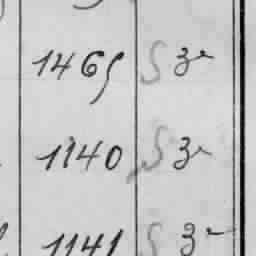 1465 S 3r
1140 S 3r
1141 S 3r